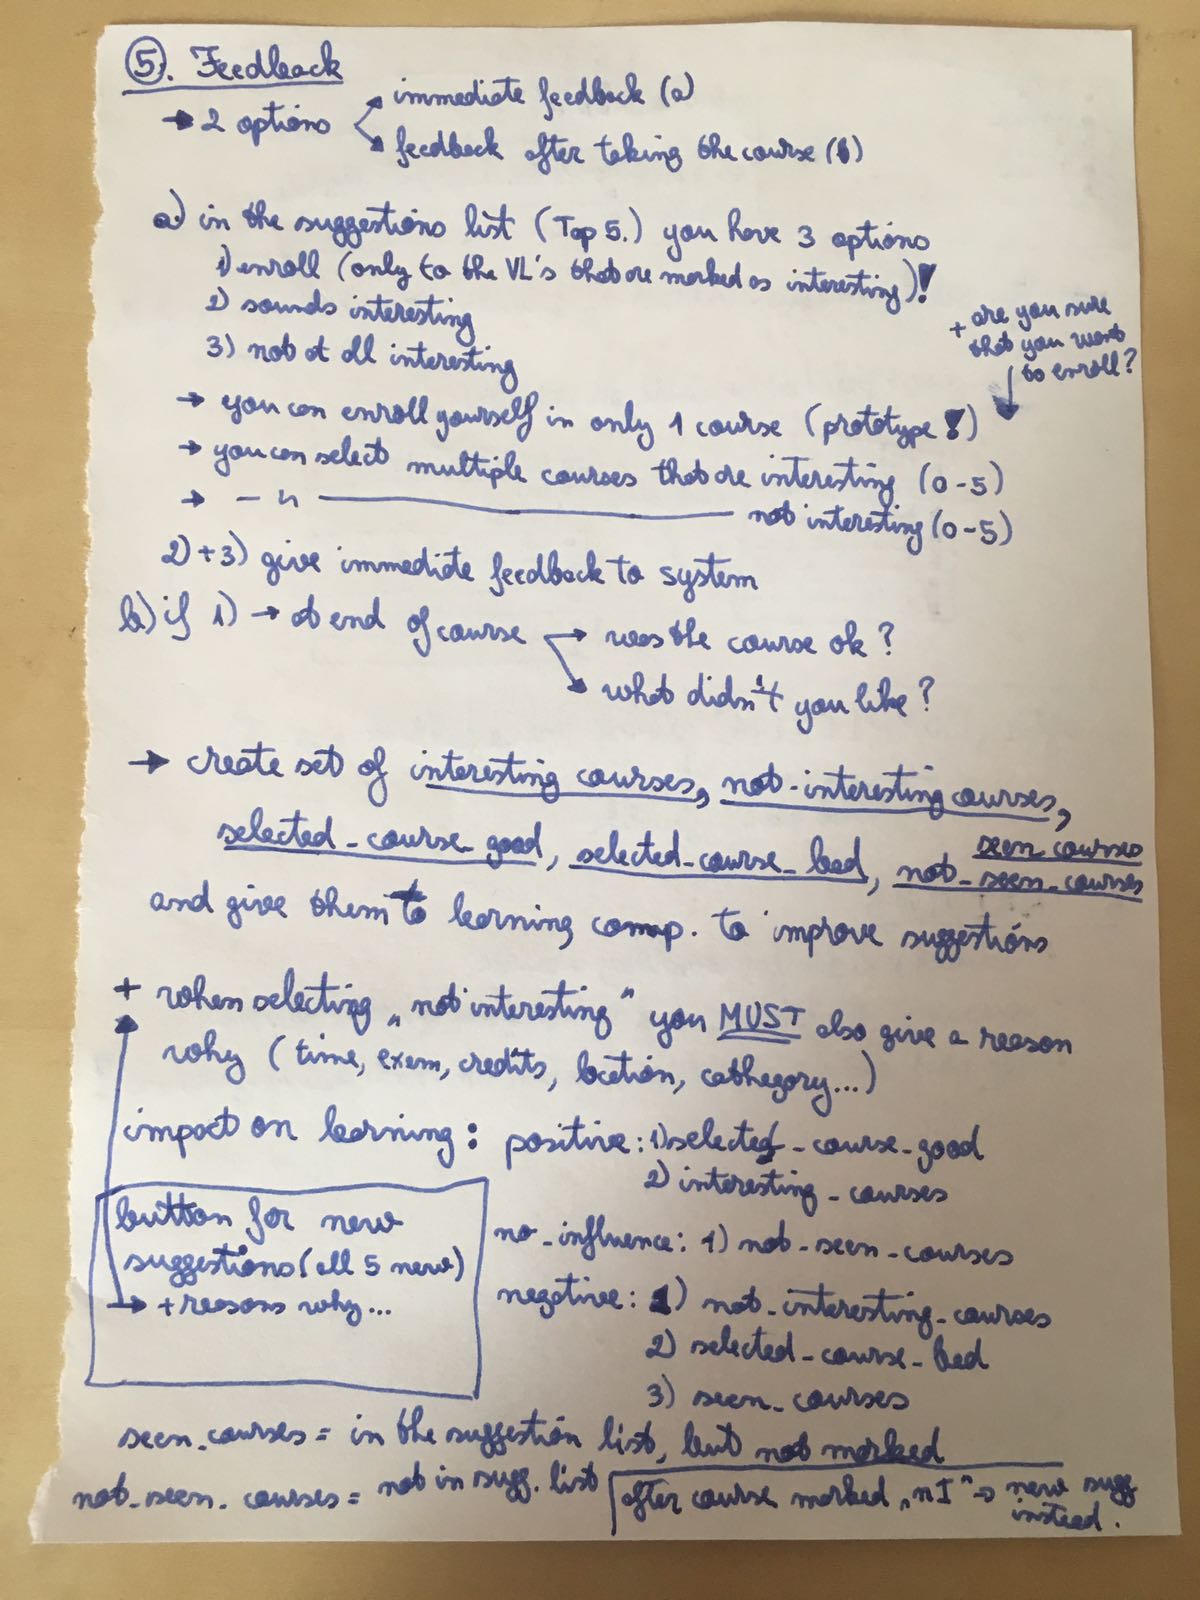 5. Feedback
→ 2 options
immediate feedback (a)
feedback after taking the course (b)
a) in the suggestions list (Top 5.) you have 3 options
1) enroll (only to the VL's that are marked as interesting)!
2) sounds interesting
3) not at all interesting
+ are you sure
that you want
to enroll?
→ you can enroll yourself in only 1 course (prototype!)
→ you can select multiple courses that are interesting (0-5)
→ — " — not interesting (0-5)
2) + 3) give immediate feedback to system
b) if 1) → at end of course → was the course ok?
what didn't you like?
→ create set of interesting courses, not-interesting courses,
seen courses
selected_course_good, selected_course_bad, not_seen_courses
and give them to learning comp. to improve suggestions
+ when selecting „not interesting" you MUST also give a reason
why (time, exam, credits, location, cathegory...)
impact on learning: positive: 1) selected_course_good
2) interesting_courses
no_influence: 1) not_seen_courses
negative: 1) not_interesting_courses
2) selected_course_bad
3) seen_courses
button for new
suggestions (all 5 new)
→ + reasons why...
seen_courses = in the suggestion list, but not marked
not_seen_courses = not in sugg. list
after course marked „nI" → new sugg
instead.